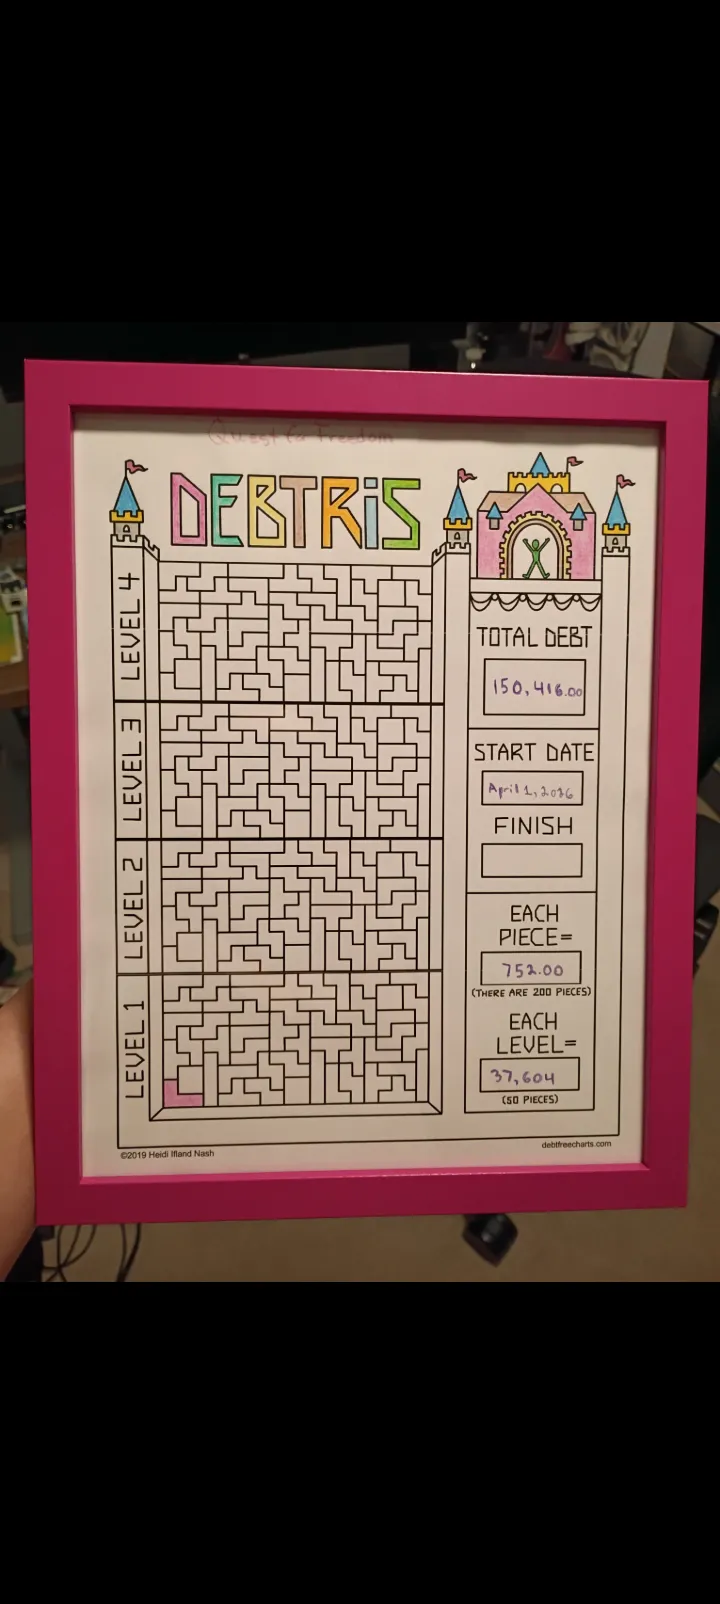 Quest to Freedom
DEBTRiS
LEVEL 4
LEVEL 3
LEVEL 2
LEVEL 1
TOTAL DEBT
150,416.00
START DATE
April 1, 2026
FINISH
EACH
PIECE=
752.00
(THERE ARE 200 PIECES)
EACH
LEVEL=
37,604
(50 PIECES)
©2019 Heidi Ifland Nash
debtfreecharts.com